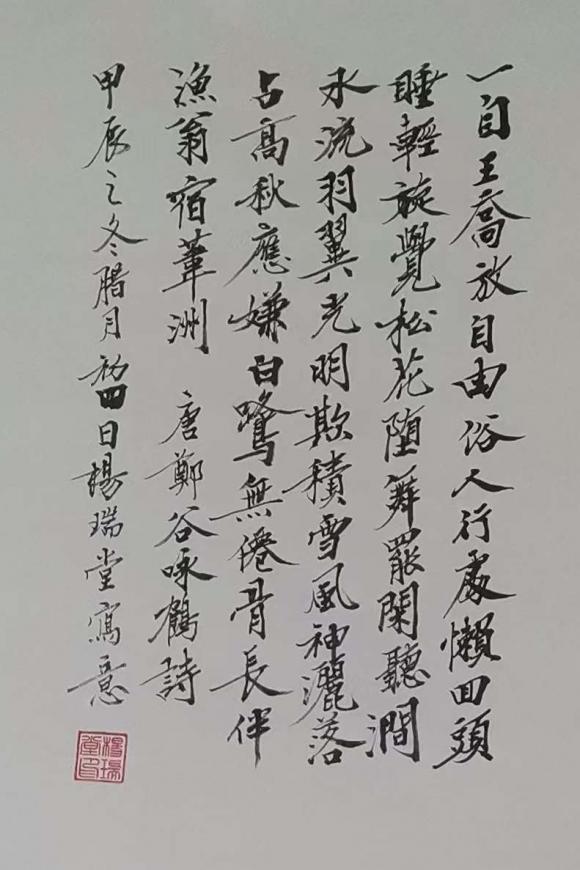 一自王喬放自由俗人行處懶回頭
睡輕旋覺松花堕舞罷閑聽澗
水流羽翼光明欺積雪風神灑落
占高秋應嫌白鷺無僊骨長伴
漁翁宿葦洲 唐鄭谷咏鶴詩
甲辰之冬腊月初四日楊瑞堂寫意
楊瑞堂印